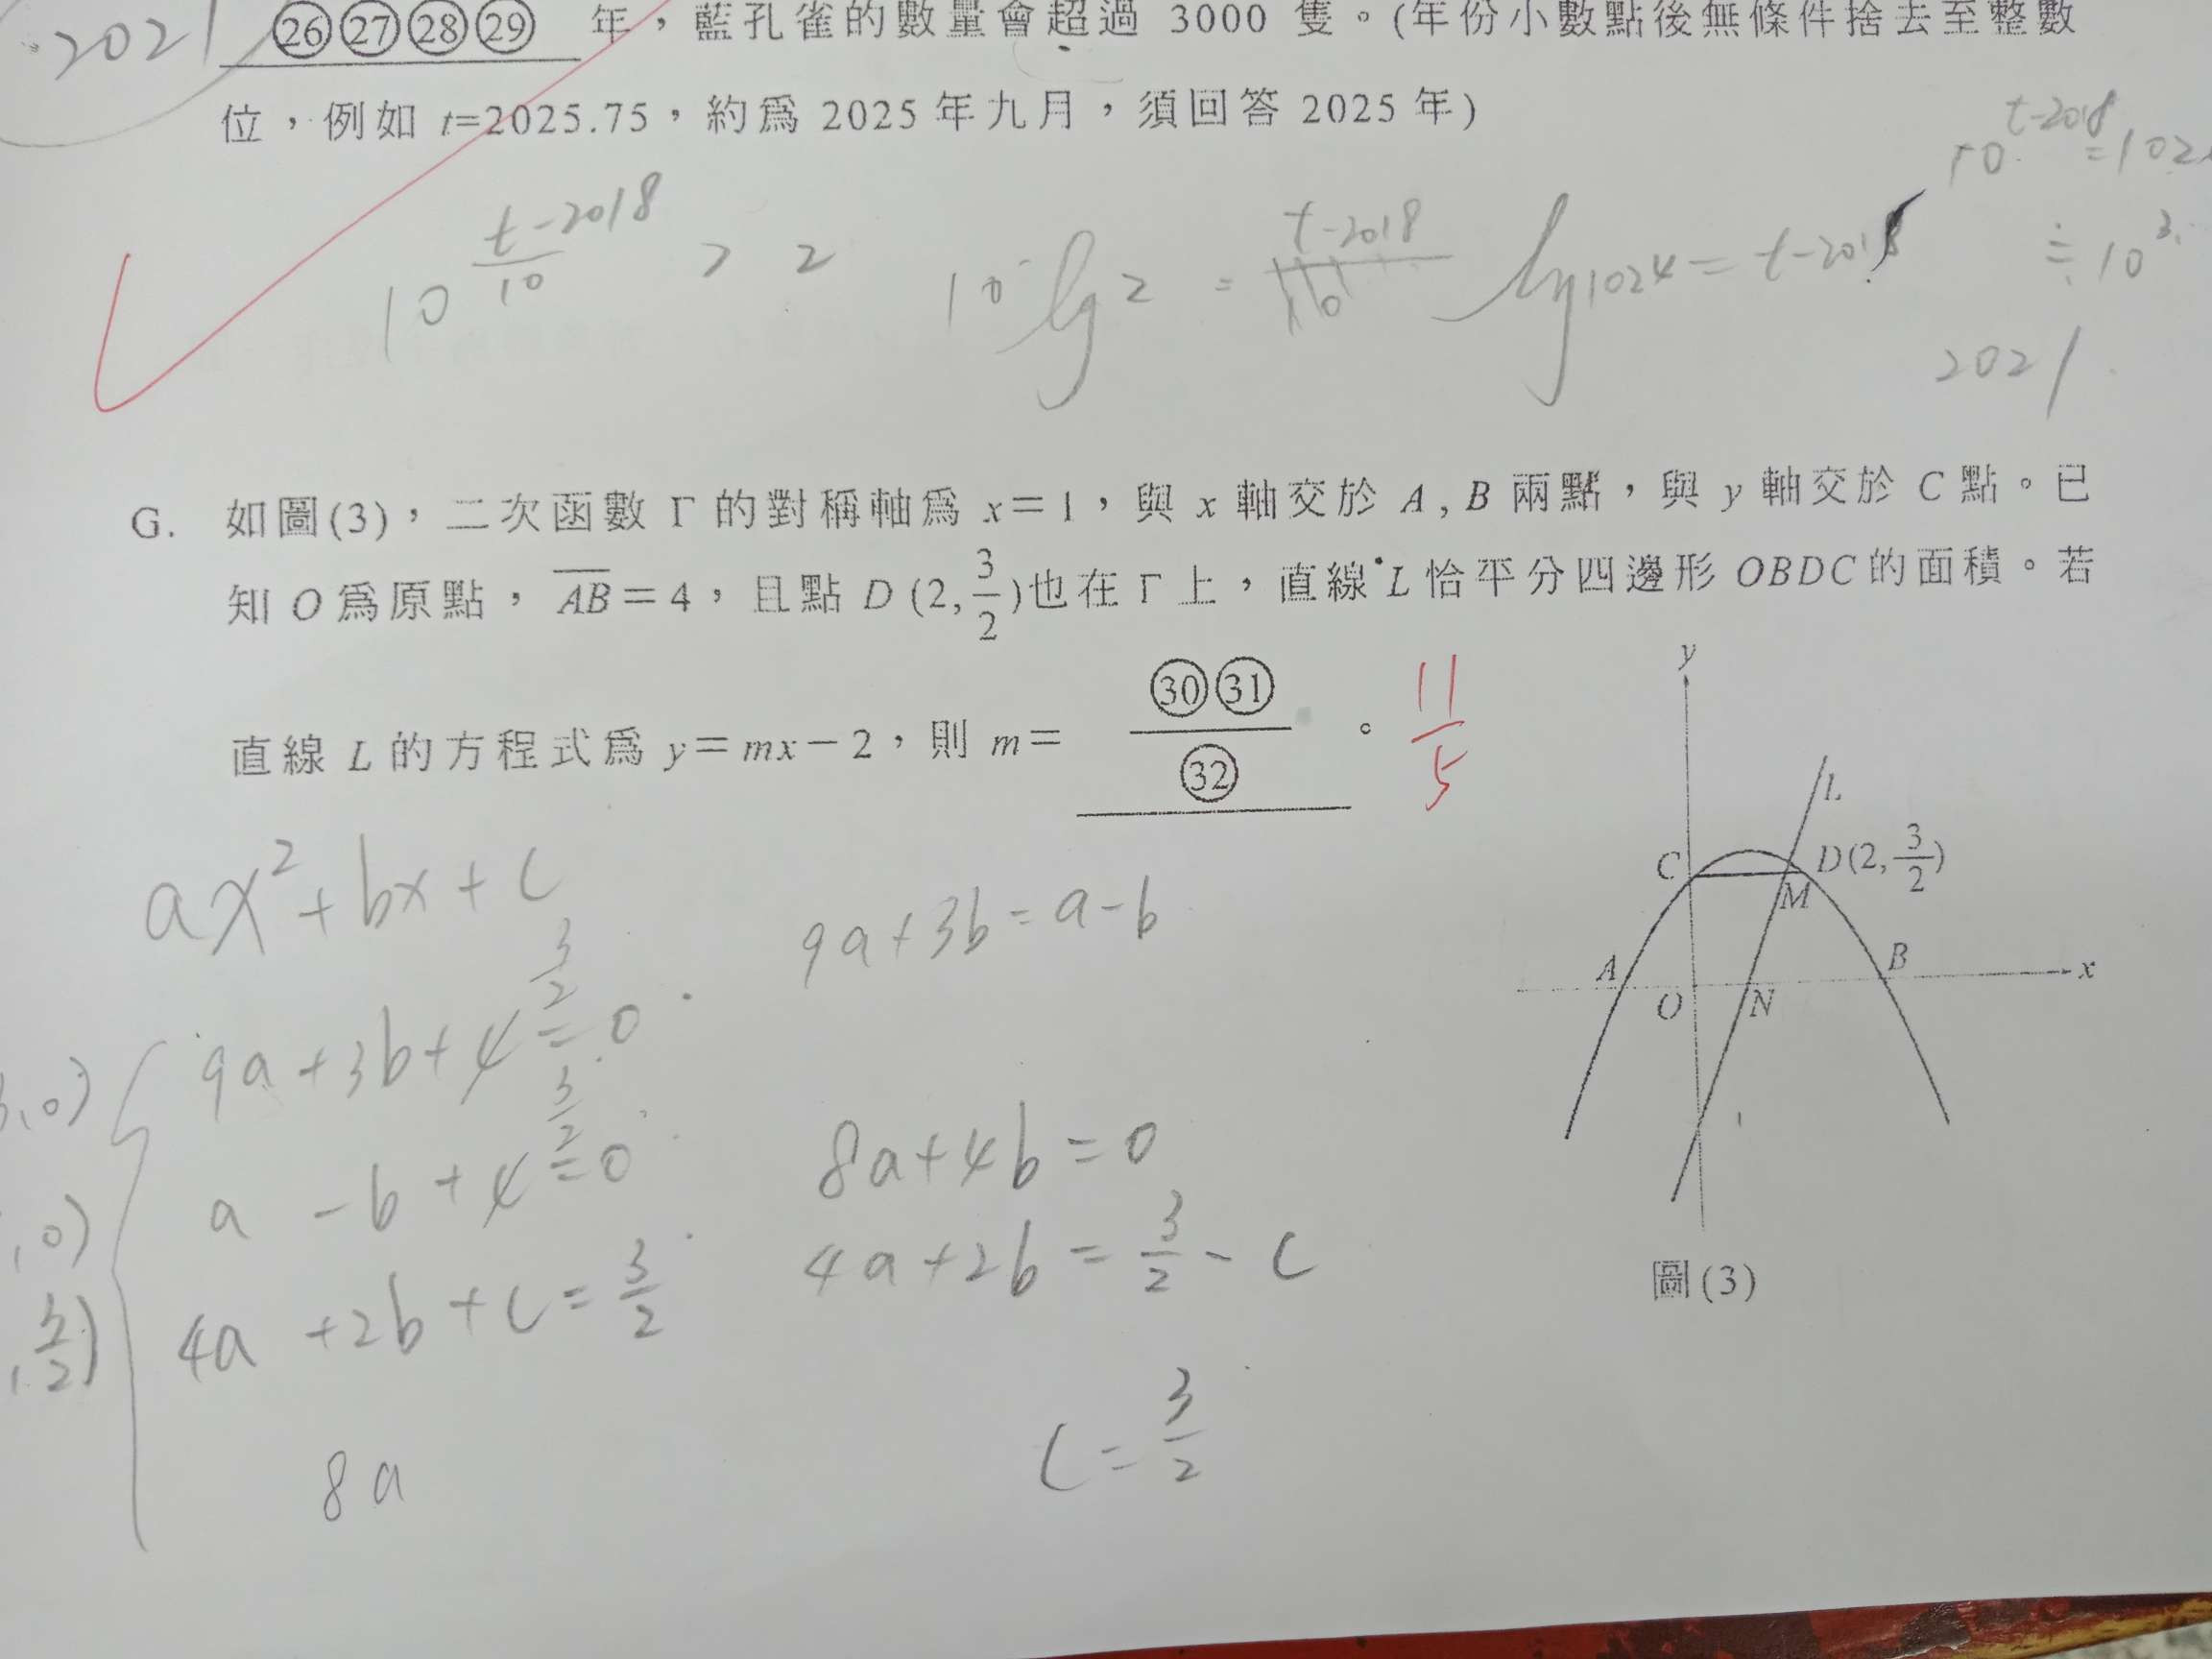 2021 ㉖㉗㉘㉙ 年，藍孔雀的數量會超過 3000 隻。(年份小數點後無條件捨去至整數
位，例如 t=2025.75，約為 2025 年九月，須回答 2025 年)
10^{t-2018} = 102
≑ 10^3
10^{\frac{t-2018}{10}} > 2
10 lg 2 = \frac{t-2018}{10}
lg 1024 = t-2018
2021
G. 如圖(3)，二次函數 Γ 的對稱軸為 x=1，與 x 軸交於 A, B 兩點，與 y 軸交於 C 點。已
知 O 為原點，\overline{AB}=4，且點 D (2, \frac{3}{2})也在 Γ 上，直線 L 恰平分四邊形 OBDC 的面積。若
直線 L 的方程式為 y=mx-2，則 m= \frac{㉚㉛}{㉜}。 \frac{11}{5}
ax^2+bx+c
9a+3b=a-b
,0) 9a+3b+\frac{3}{2}=0
,0) a-b+\frac{3}{2}=0
,\frac{3}{2}) 4a+2b+c=\frac{3}{2}
8a+4b=0
4a+2b=\frac{3}{2}-c
8a
c=\frac{3}{2}
y
L
C
D(2, \frac{3}{2})
M
A
B
x
O
N
圖(3)